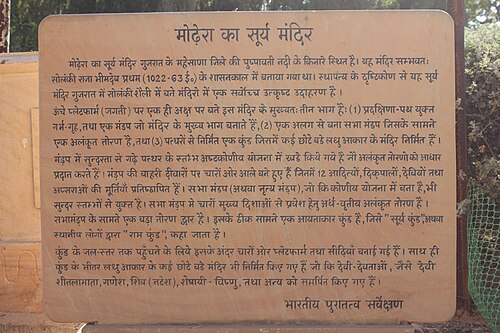 मोढ़ेरा का सूर्य मंदिर
मोढ़ेरा का सूर्य मंदिर गुजरात के महेसाणा जिले की पुष्पावती नदी के किनारे स्थित है। यह मंदिर सम्भवतः
सोलंकी राजा भीमदेव प्रथम (1022-63 ई०) के शासनकाल में बताया गया था। स्थापत्य के दृष्टिकोण से यह सूर्य
मंदिर गुजरात में सोलंकी शैली में बने मंदिरों में एक सर्वोच्च उत्कृष्ट उदाहरण है।
ऊंचे प्लेटफार्म (जगती) पर एक ही अक्ष पर बने इस मंदिर के मुख्यतः तीन भाग हैः (1) प्रदक्षिणा-पथ युक्त
गर्भ-गृह, तथा एक मंडप जो मंदिर के मुख्य भाग बनाते हैं, (2) एक अलग से बना सभा मंडप जिसके सामने
एक अलंकृत तोरण है, तथा (3) पत्थरों से निर्मित एक कुंड जिसमें कई छोटे बड़े लघु आकार के मंदिर निर्मित हैं।
मंडप में सुन्दरता से गढ़े पत्थर के स्तंभ अष्टकोणीय योजना में खड़े किये गये है जो अलंकृत तोरणो को आधार
प्रदान करते हैं। मंडप की बाहरी दीवारों पर चारों ओर आले बने हुए हैं जिनमें 12 आदित्यों, दिक्पालों, देवियों तथा
अप्सराओं की मूर्तियाँ प्रतिष्ठापित हैं। सभा मंडप (अथवा नृत्य मंडप), जो कि कोणीय योजना में बना है, भी
सुन्दर स्तम्भों से युक्त है। सभा मंडप मे चारों मुख्य दिशाओं से प्रवेश हेतु अर्ध-वृतीय अलंकृत तोरण है।
सभामंडप के सामने एक बड़ा तोरण द्वार है। इसके ठीक सामने एक आयताकार कुंड है, जिसे "सूर्य कुंड", अथवा
स्थानीय लोगों द्वारा "राम कुंड", कहा जाता है।
कुंड के जल-स्तर तक पहुँचने के लिये इसके अंदर चारों ओर प्लेटफार्म तथा सीढ़ियाँ बनाई गई हैं। साथ ही
कुंड के भीतर लघु आकार के कई छोटे बड़े मंदिर भी निर्मित किए गए हैं जो कि देवी-देवताओं, जैसे देवी
शीतलामाता, गणेश, शिव (नटेश), शेषशायी-विष्णु, तथा अन्य को समर्पित किए गए हैं।
भारतीय पुरातत्व सर्वेक्षण